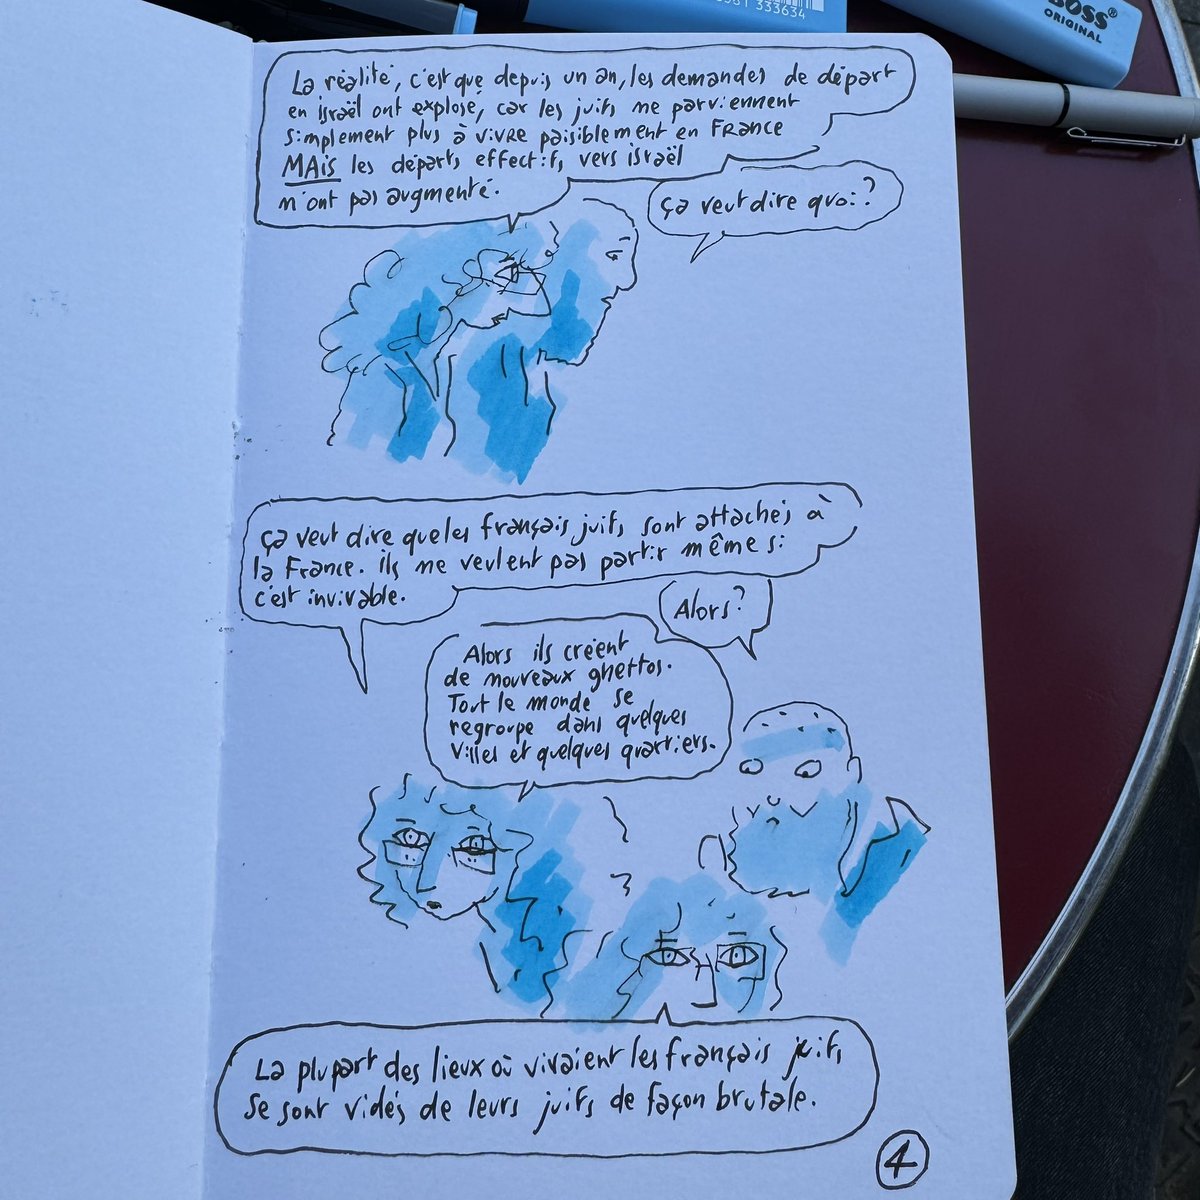 333634
BOSS®
ORIGINAL
La réalité, c'est que depuis un an, les demandes de départ
en israël ont explosé, car les juifs ne parviennent
simplement plus à vivre paisiblement en France
MAIS les départs effectifs vers israël
n'ont pas augmenté.
ça veut dire quoi?
ça veut dire que les français juifs sont attachés à
la France. ils ne veulent pas partir même si
c'est invivable.
Alors?
Alors ils créent
de nouveaux ghettos.
Tout le monde se
regroupe dans quelques
villes et quelques quartiers.
La plupart des lieux où vivaient les français juifs
se sont vidés de leurs juifs de façon brutale.
4